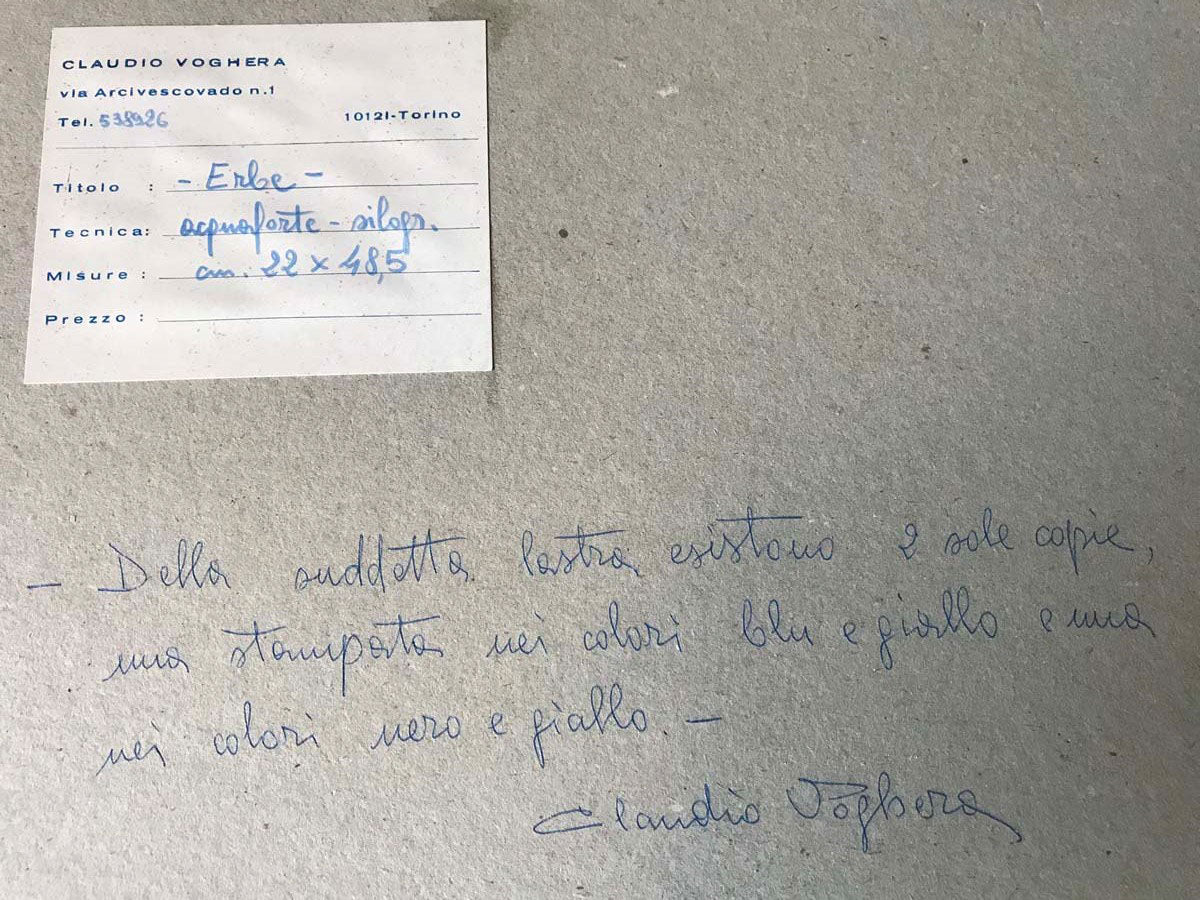 CLAUDIO VOGHERA
via Arcivescovado n.1
Tel. 538926 10121-Torino
Titolo : - Erbe -
Tecnica: acquaforte - silogr.
Misure : cm. 22 x 48,5
Prezzo :
- Della suddetta lastra esistono 2 sole copie,
una stampata nei colori blu e giallo e una
nei colori nero e giallo. -
Claudio Voghera